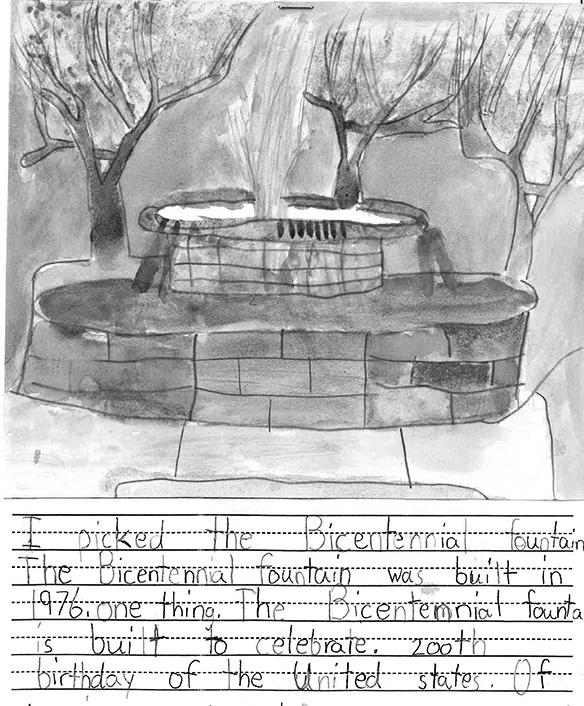 I picked the Bicentennial fountain
The Bicentennial fountain was built in
1976. one thing. The Bicentennial founta
is built to celebrate. 200th
birthday of the United states. Of